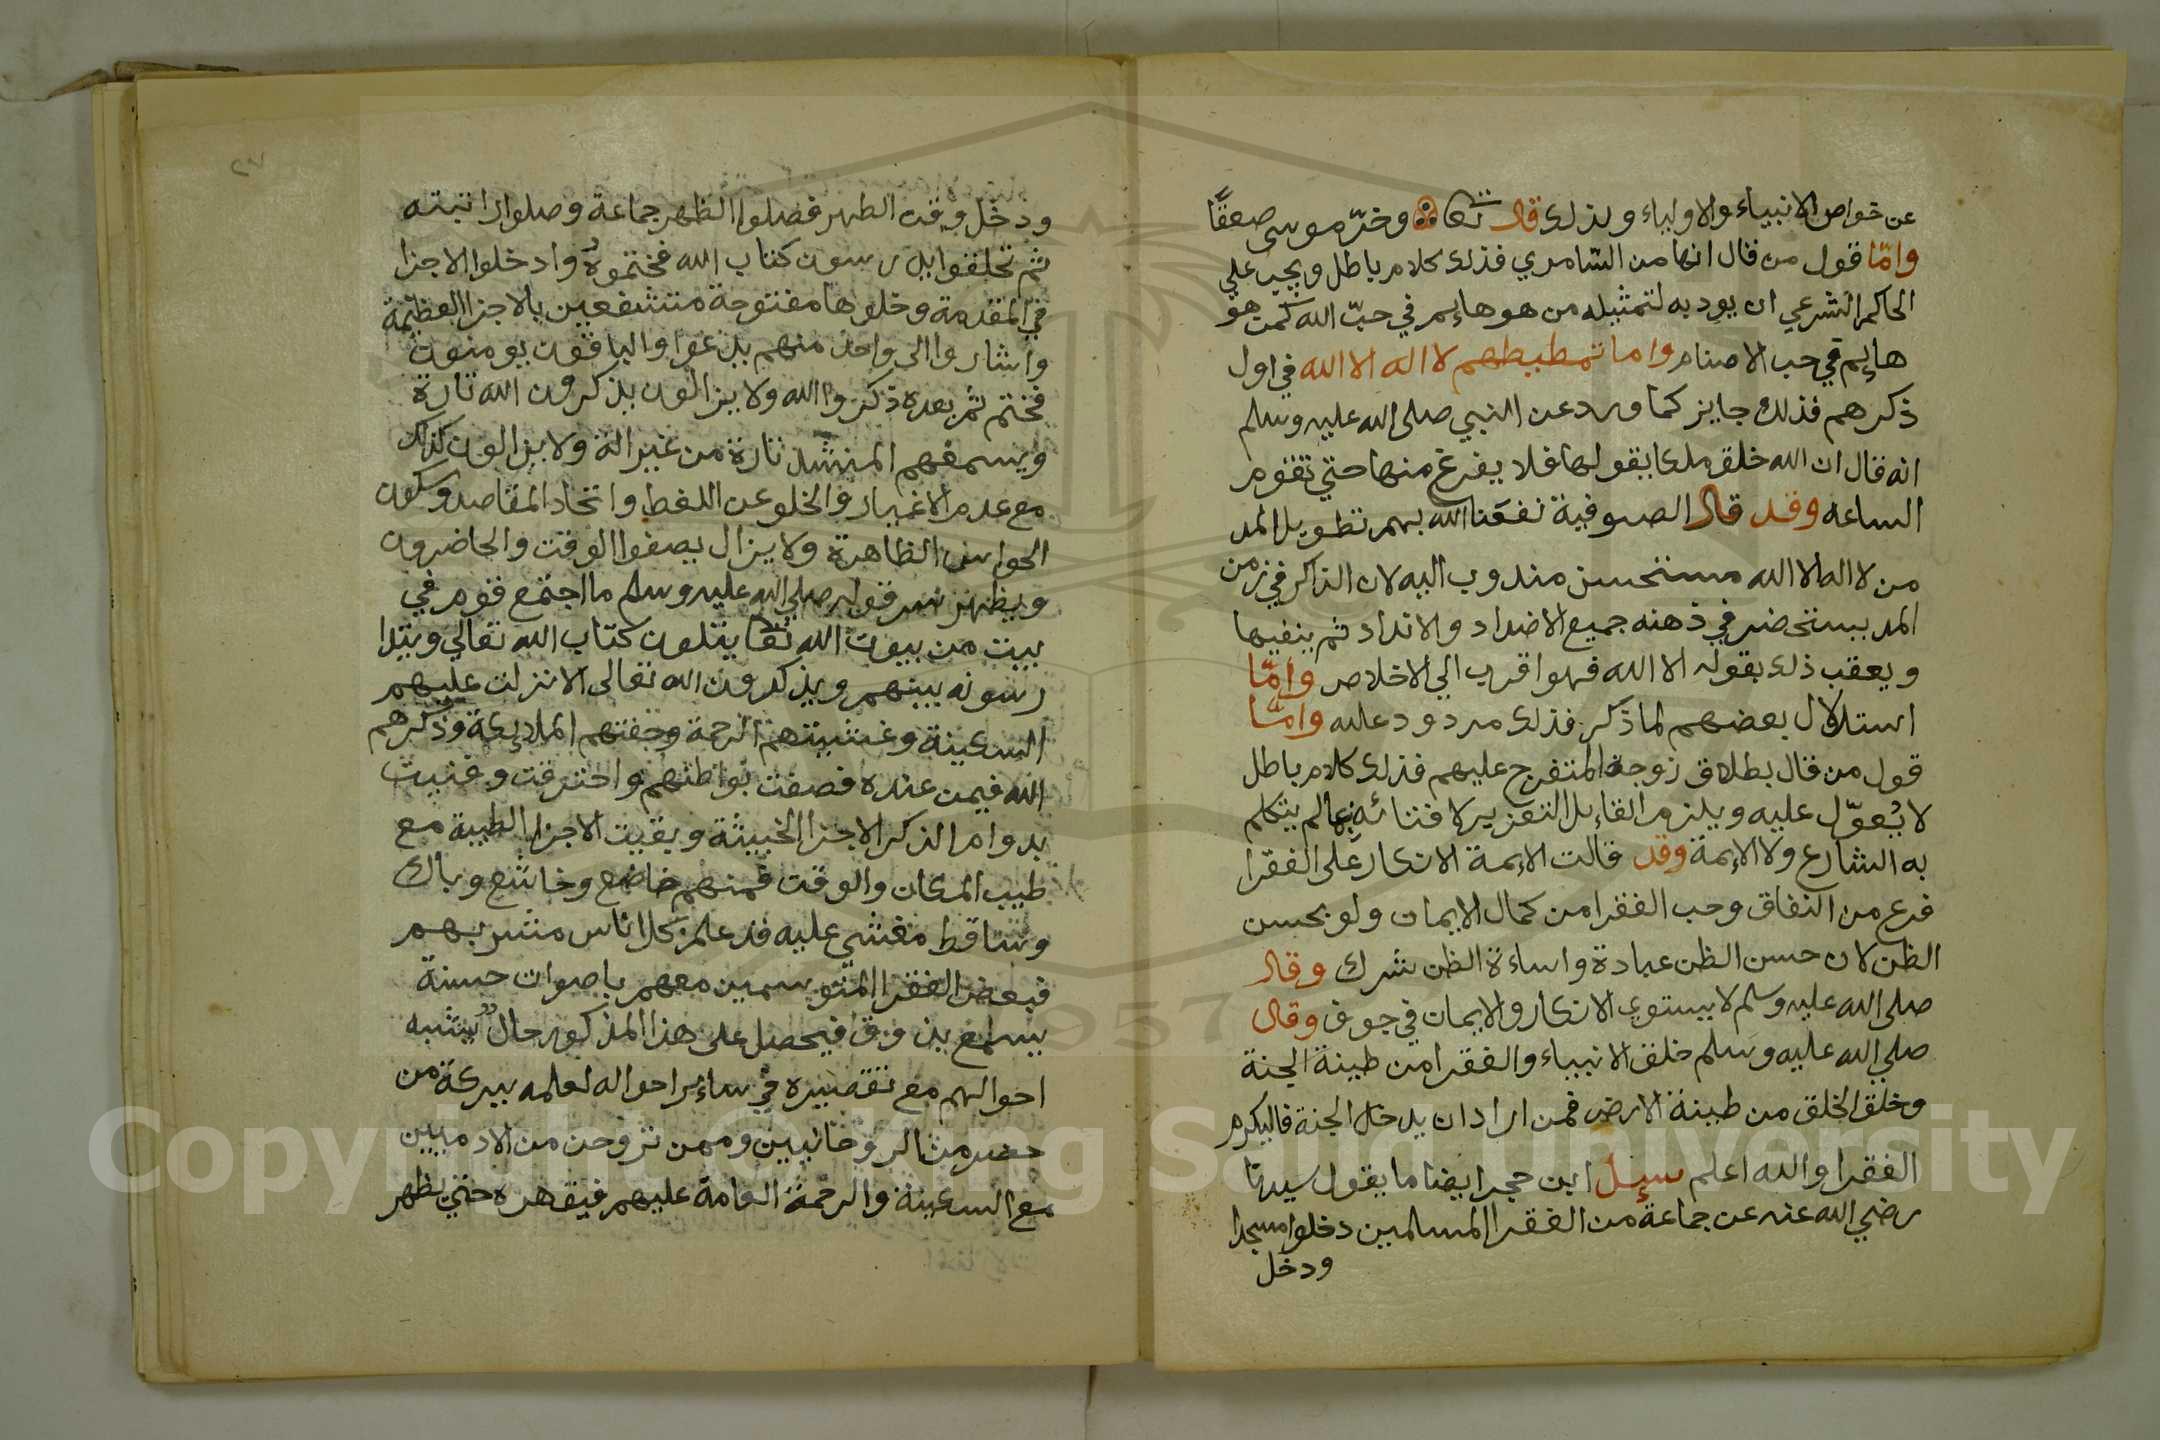 عن خواص الانبياء والاولياء ولذلك قال تعا وخرّ موسى صعقًا
وامّا قول من قال انها من السّامري فذلك كلام باطل ويجب علي
الحاكم الشرعي ان يودبه لتمثيله من هو هايم في حبّ الله كمن هو
هايم في حب الاصنام واما تمطيطهم لا اله الا الله في اول
ذكرهم فذلك جايز كما ورد عن النبي صلى الله عليه وسلم
انه قال ان الله خلق ملكا يقولها فلا يفرغ منها حتي تقوم
الساعه وقد قال الصوفية نفعنا الله بهم تطويل المد
من لا اله الا الله مستحسن مندوب اليه لان الذاكر في زمن
المد يستحضر في ذهنه جميع الاضداد والانداد ثم ينفيها
ويعقب ذلك بقوله الا الله فهو اقرب الي الاخلاص وامّا
استدلال بعضهم لما ذكر فذلك مردود عليه وامّا
قول من قال بطلاق زوجة المتفرج عليهم فذلك كلام باطل
لا يُعوّل عليه ويلزم القايل التعزير لافتائه بمالم يتكلم
به الشارع ولا الايمة وقد قالت الايمة الانكار على الفقرا
فرع من النفاق وحب الفقرا من كمال الايمان ولو بحسن
الظن لان حسن الظن عبادة واساءة الظن شرك وقال
صلى الله عليه وسلم لا يستوي الانكار والايمان في جوف وقال
صلي الله عليه وسلم خلق الانبياء والفقرا من طينة الجنة
وخلق الخلق من طينة الارض فمن اراد ان يدخل الجنة فاليكرم
الفقرا والله اعلم سيل ابن حجر ايضا ما يقول سيدنا
رضي الله عنه عن جماعة من الفقرا المسلمين دخلوا مسجدا
ودخل
٢٧
ودخل وقت الظهر فصلوا الظهر جماعة وصلوا راتبته
ثم تحلقوا يدرسون كتاب الله فختموه وادخلوا الاجزا
في المقدمة وخلوها مفتوحة متشفعين بالاجزا العظيمة
واشاروا الى واحد منهم يدعوا والباقون يومنون
فختم ثم بعده ذكروا الله ولا يزالون يذكرون الله تارة
ويسمعهم المنشد تارة من غير الة ولا يزالون كذلك
مع عدم الاغيار والخلو عن اللغط واتحاد المقاصد وسكون
الحواس الظاهرة ولا يزال يصفوا الوقت والحاضرون
ويظهر سر قوله صلي الله عليه وسلم ما اجتمع قوم في
بيت من بيوت الله تعا يتلون كتاب الله تعالي ويتدا
رسونه بينهم ويذكرون الله تعالى الا نزلت عليهم
السكينة وغشيتهم الرحمة وحفتهم الملايكة وذكرهم
الله فيمن عنده فصفت بواطنهم واحترقت وفنيت
بدوام الذكر الاجزا الخبيثة وبقيت الاجزا الطيبة مع
طيب المكان والوقت فمنهم خاضع وخاشع وباك
وساقط مغشي عليه قد علم كل اناس مشربهم
فبعض الفقرا المتوسمين معهم باصوات حسنة
يسمع بذوق فيحصل على هذا المذكور حال يشبه
احوالهم مع تقصيره في ساير احواله لعلمه ببركة من
حضر من الروحانيين وممن تروحن من الادميين
مع السكينة والرحمة العامة عليهم فيقهره حتي يظهر
Copyright © King Saud University
1957